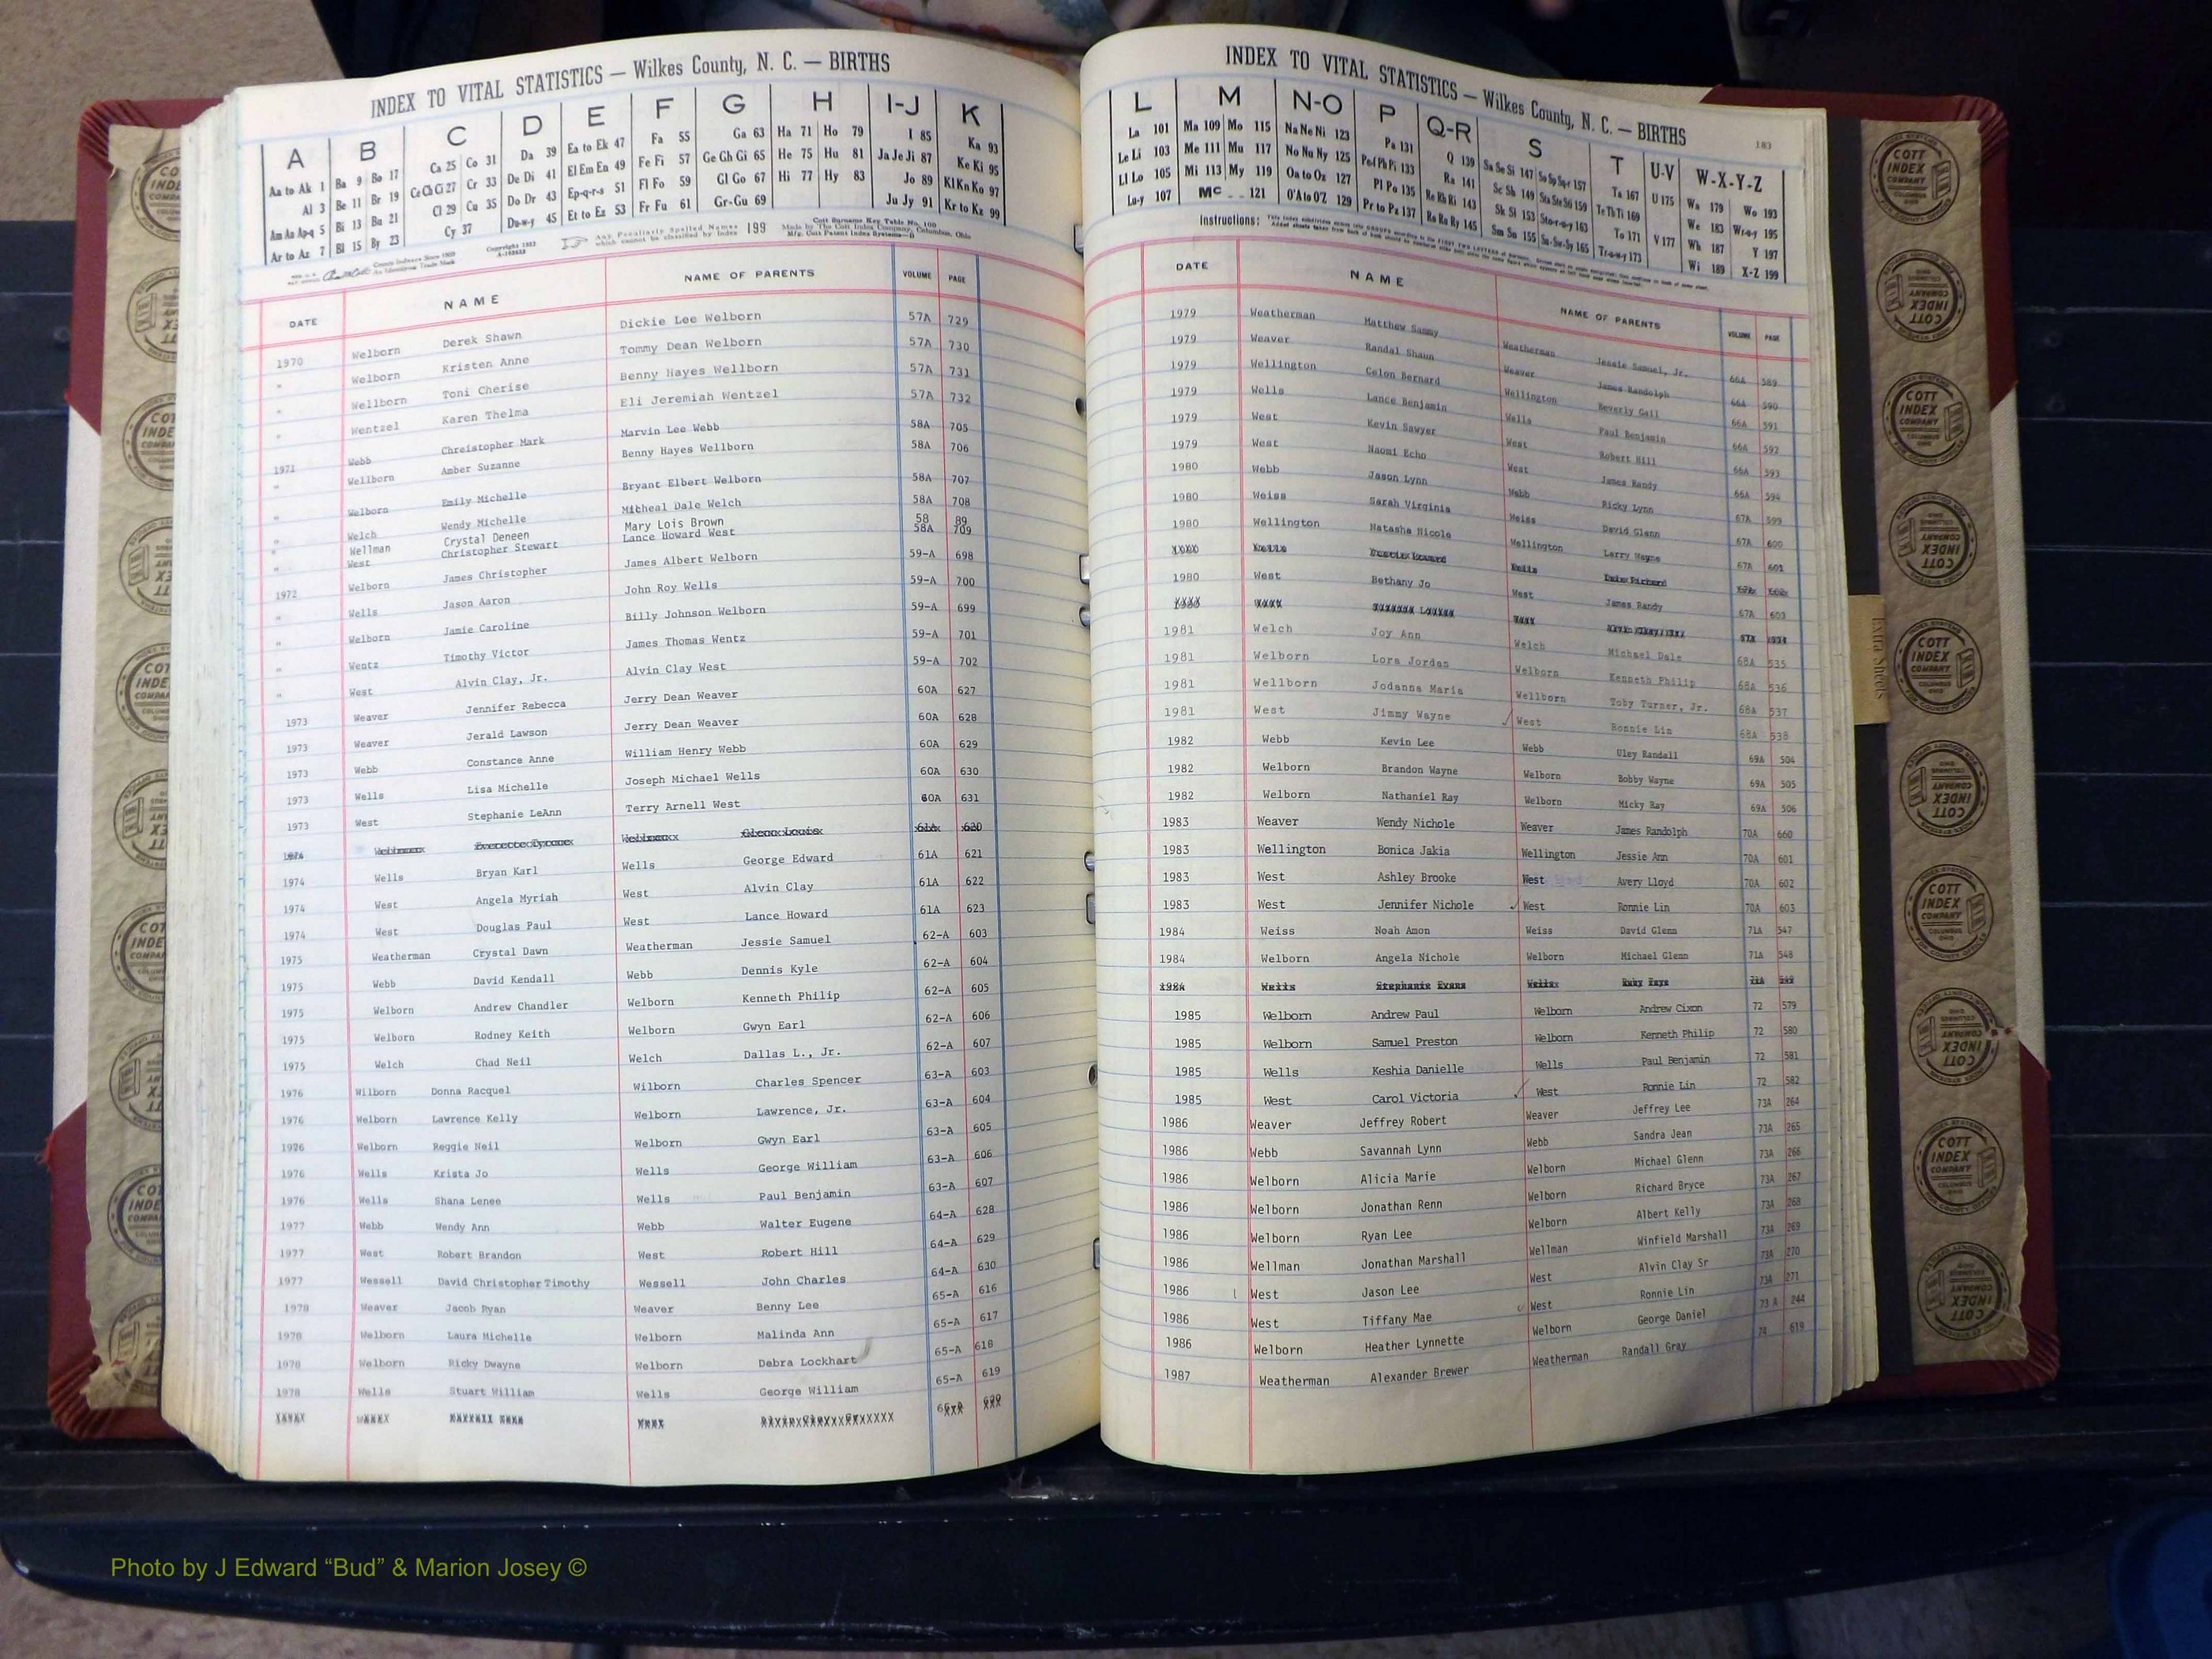 INDEX TO VITAL STATISTICS — Wilkes County, N. C. — BIRTHS
A B C D E F G H I-J K
Aa to Ak 1 Ba 9 Bo 17 Ca 25 Co 31 Da 39 Ea to Ek 47 Fa 55 Ga 63 Ha 71 Ho 79 I 85 Ka 93
Al 3 Be 11 Br 19 Ce Ch Ci 27 Cr 33 De Di 41 El Em En 49 Fe Fi 57 Ge Gh Gi 65 He 75 Hu 81 Ja Je Ji 87 Ke Ki 95
Am An Ap-q 5 Bi 13 Bu 21 Cl 29 Cu 35 Do Dr 43 Ep-q-r-s 51 Fl Fo 59 Gl Go 67 Hi 77 Hy 83 Jo 89 Kl Kn Ko 97
Ar to Az 7 Bl 15 By 23 Cy 37 Du-w-y 45 Et to Ez 53 Fr Fu 61 Gr-Gu 69 Ju Jy 91 Kr to Kz 99
Any Peculiarly Spelled Names which cannot be classified by Index 199
DATE NAME NAME OF PARENTS VOLUME PAGE
1970 Welborn Derek Shawn Dickie Lee Welborn 57A 729
" Welborn Kristen Anne Tommy Dean Welborn 57A 730
" Wellborn Toni Cherise Benny Hayes Wellborn 57A 731
" Wentzel Karen Thelma Eli Jeremiah Wentzel 57A 732
1971 Webb Chreistopher Mark Marvin Lee Webb 58A 705
" Wellborn Amber Suzanne Benny Hayes Wellborn 58A 706
" Welborn Emily Michelle Bryant Elbert Welborn 58A 707
" Welch Wendy Michelle Micheal Dale Welch 58A 708
" Wellman Crystal Deneen Mary Lois Brown 58 89
" West Christopher Stewart Lance Howard West 58A 709
1972 Welborn James Christopher James Albert Welborn 59-A 698
" Wells Jason Aaron John Roy Wells 59-A 700
" Welborn Jamie Caroline Billy Johnson Welborn 59-A 699
" Wentz Timothy Victor James Thomas Wentz 59-A 701
" West Alvin Clay, Jr. Alvin Clay West 59-A 702
1973 Weaver Jennifer Rebecca Jerry Dean Weaver 60A 627
1973 Weaver Jerald Lawson Jerry Dean Weaver 60A 628
1973 Webb Constance Anne William Henry Webb 60A 629
1973 Wells Lisa Michelle Joseph Michael Wells 60A 630
1973 West Stephanie LeAnn Terry Arnell West 60A 631
1974 Wells Bryan Karl Wells George Edward 61A 621
1974 West Angela Myriah West Alvin Clay 61A 622
1974 West Douglas Paul West Lance Howard 61A 623
1975 Weatherman Crystal Dawn Weatherman Jessie Samuel 62-A 603
1975 Webb David Kendall Webb Dennis Kyle 62-A 604
1975 Welborn Andrew Chandler Welborn Kenneth Philip 62-A 605
1975 Welborn Rodney Keith Welborn Gwyn Earl 62-A 606
1975 Welch Chad Neil Welch Dallas L., Jr. 62-A 607
1976 Wilborn Donna Racquel Wilborn Charles Spencer 63-A 603
1976 Welborn Lawrence Kelly Welborn Lawrence, Jr. 63-A 604
1976 Welborn Reggie Neil Welborn Gwyn Earl 63-A 605
1976 Wells Krista Jo Wells George William 63-A 606
1976 Wells Shana Lenee Wells Paul Benjamin 63-A 607
1977 Webb Wendy Ann Webb Walter Eugene 64-A 628
1977 West Robert Brandon West Robert Hill 64-A 629
1977 Wessell David Christopher Timothy Wessell John Charles 64-A 630
1978 Weaver Jacob Ryan Weaver Benny Lee 65-A 616
1978 Welborn Laura Michelle Welborn Malinda Ann 65-A 617
1978 Welborn Ricky Dwayne Welborn Debra Lockhart 65-A 618
1978 Wells Stuart William Wells George William 65-A 619
INDEX TO VITAL STATISTICS — Wilkes County, N. C. — BIRTHS
183
L M N-O P Q-R S T U-V W-X-Y-Z
La 101 Ma 109 Mo 115 Na Ne Ni 123 Pa 131 Q 139 Sa Se Si 147 So Sp Sq-r 157 Ta 167 U 175 Wa 179 Wo 193
Le Li 103 Me 111 Mu 117 No Nu Ny 125 Pe-f Ph Pi 133 Ra 141 Sc Sh 149 Sta Ste Sti 159 Te Th Ti 169 We 183 Wr-o-y 195
Ll Lo 105 Mi 113 My 119 Oa to Oz 127 Pl Po 135 Re Rh Ri 143 Sk Sl 153 Sto-r-u-y 163 To 171 V 177 Wh 187 Y 197
Lu-y 107 Mc 121 O'A to O'Z 129 Pr to Pz 137 Ro Ru Ry 145 Sm Sn 155 Su-Sw-Sy 165 Tr-u-w-y 173 Wi 189 X-Z 199
Instructions:
DATE NAME NAME OF PARENTS VOLUME PAGE
1979 Weatherman Matthew Sammy Weatherman Jessie Samuel, Jr. 66A 589
1979 Weaver Randal Shaun Weaver James Randolph 66A 590
1979 Wellington Celon Bernard Wellington Beverly Gail 66A 591
1979 Wells Lance Benjamin Wells Paul Benjamin 66A 592
1979 West Kevin Sawyer West Robert Hill 66A 593
1979 West Naomi Echo West James Randy 66A 594
1980 Webb Jason Lynn Webb Ricky Lynn 67A 599
1980 Weiss Sarah Virginia Weiss David Glenn 67A 600
1980 Wellington Natasha Nicole Wellington Larry Wayne 67A 601
1980 West Bethany Jo West James Randy 67A 603
1981 Welch Joy Ann Welch Michael Dale 68A 535
1981 Welborn Lora Jordan Welborn Kenneth Philip 68A 536
1981 Wellborn Jodanna Maria Wellborn Toby Turner, Jr. 68A 537
1981 West Jimmy Wayne West Ronnie Lin 68A 538
1982 Webb Kevin Lee Webb Uley Randall 69A 504
1982 Welborn Brandon Wayne Welborn Bobby Wayne 69A 505
1982 Welborn Nathaniel Ray Welborn Micky Ray 69A 506
1983 Weaver Wendy Nichole Weaver James Randolph 70A 660
1983 Wellington Bonica Jakia Wellington Jessie Ann 70A 601
1983 West Ashley Brooke West Avery Lloyd 70A 602
1983 West Jennifer Nichole West Ronnie Lin 70A 603
1984 Weiss Noah Amon Weiss David Glenn 71A 547
1984 Welborn Angela Nichole Welborn Michael Glenn 71A 548
1985 Welborn Andrew Paul Welborn Andrew Cixon 72 579
1985 Welborn Samuel Preston Welborn Kenneth Philip 72 580
1985 Wells Keshia Danielle Wells Paul Benjamin 72 581
1985 West Carol Victoria West Ronnie Lin 72 582
1986 Weaver Jeffrey Robert Weaver Jeffrey Lee 73A 264
1986 Webb Savannah Lynn Webb Sandra Jean 73A 265
1986 Welborn Alicia Marie Welborn Michael Glenn 73A 266
1986 Welborn Jonathan Renn Welborn Richard Bryce 73A 267
1986 Welborn Ryan Lee Welborn Albert Kelly 73A 268
1986 Wellman Jonathan Marshall Wellman Winfield Marshall 73A 269
1986 West Jason Lee West Alvin Clay Sr 73A 270
1986 West Tiffany Mae West Ronnie Lin 73A 271
1986 Welborn Heather Lynnette Welborn George Daniel 73 A 244
1987 Weatherman Alexander Brewer Weatherman Randall Gray 74 619
Extra Sheets
COTT INDEX COMPANY COLUMBUS OHIO
Photo by J Edward “Bud” & Marion Josey ©